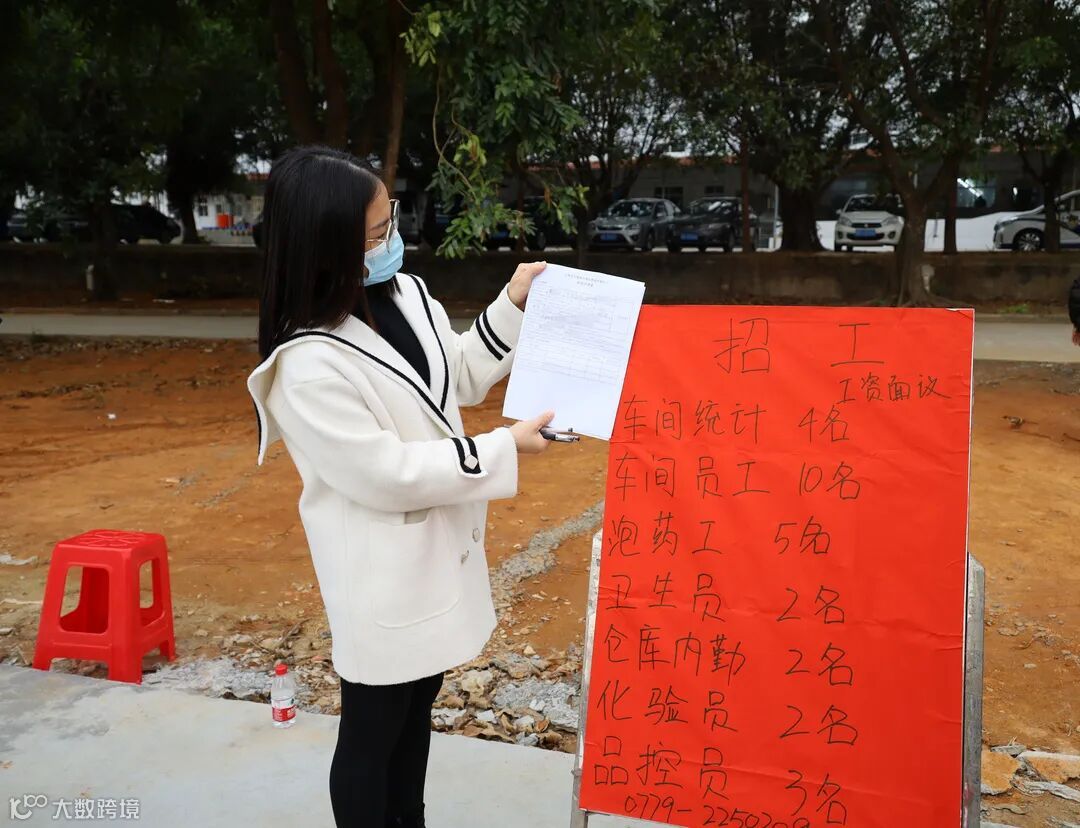 招工
工资面议
车间统计 4名
车间员工 10名
泡药工 5名
卫生员 2名
仓库内勤 2名
化验员 2名
品控员 3名
0779-2250209
大数跨境